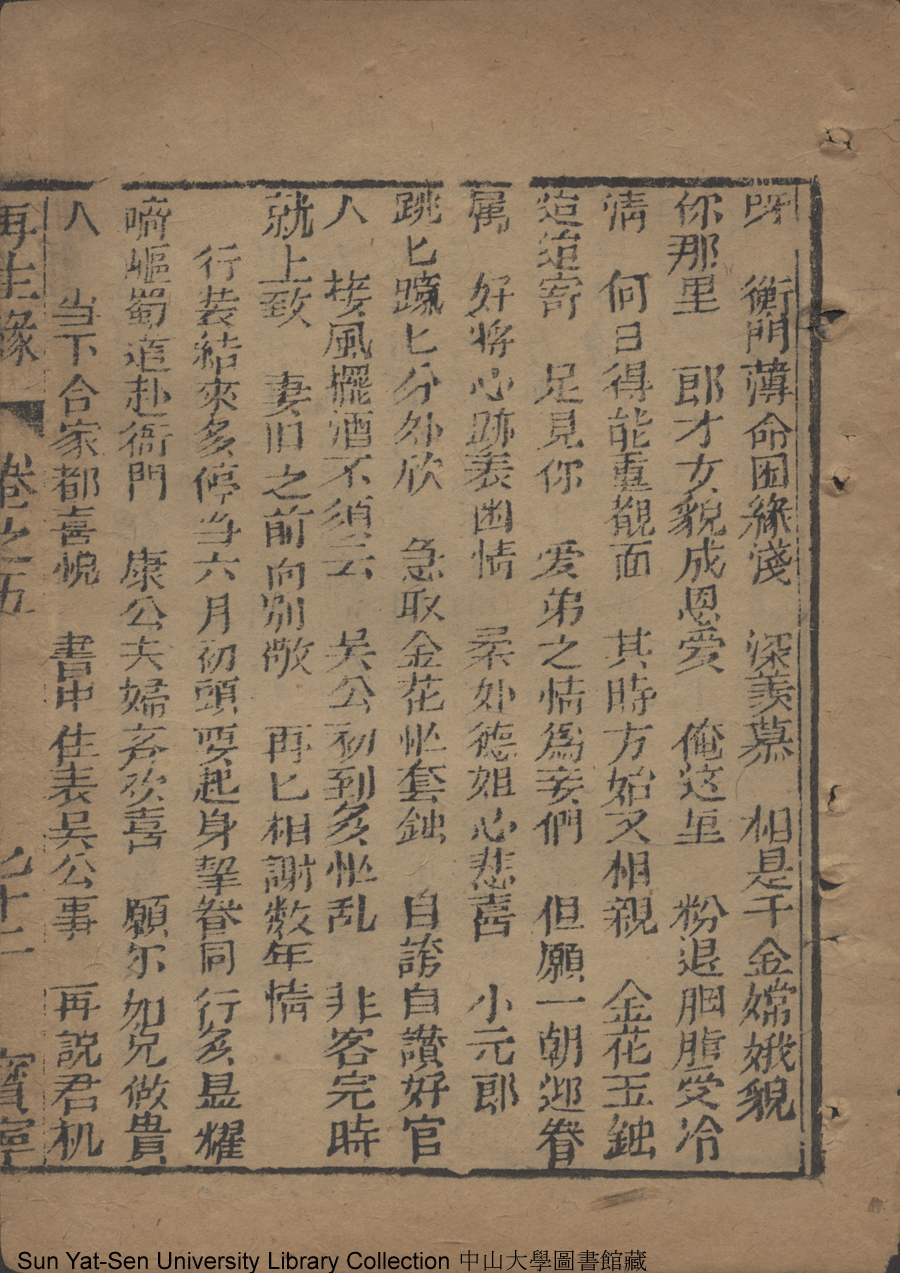 呀 衡門薄命因緣淺 深羡慕 相是千金嫦娥貌
你那里 郎才女貌成恩爱 俺这里 粉退胭脂受冷
情 何日得能重覩面 其時方始又相親 金花玉鈿
寄 足見你 爱弟之情爲妾們 但願一朝迎眷
属 好將心跡表幽情 柔外德姐心悲喜 小元郎
跳匕躍匕分外欣 急取金花忙套鈿 自誇自讃好官
人 接風擺酒不須云 吴公初到多忙乱 非客完時
就上致 妻旧之前向别敬 再匕相謝数年情
行装結束多停当六月初頭要起身挈眷同行多显耀
崎嶇蜀道赴衙門 康公夫婦多欢喜 願尔如兄做貴
人 当下合家都喜悅 書中住表吴公事 再說君机
再生緣 卷之五 七十二 寳寧
Sun Yat-Sen University Library Collection 中山大學圖書館藏